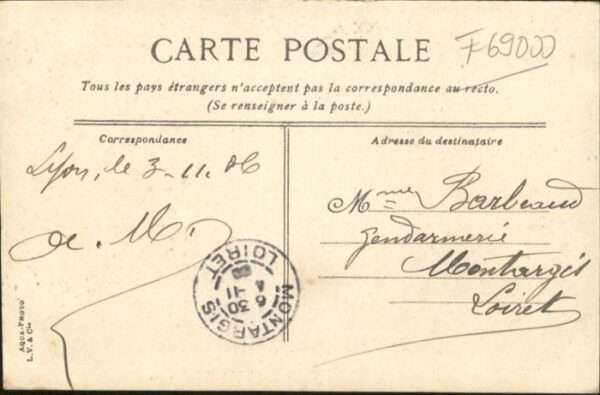 CARTE POSTALE
F69000
Tous les pays étrangers n'acceptent pas la correspondance au recto.
(Se renseigner à la poste.)
Correspondance
Lyon, le 3-11.06
Adresse du destinataire
Mme Barbeaud
Gendarmerie
Montargis
Loiret
MONTARGIS
LOIRET
30
6 -11
AQUA-PHOTO
L.V. & Cie